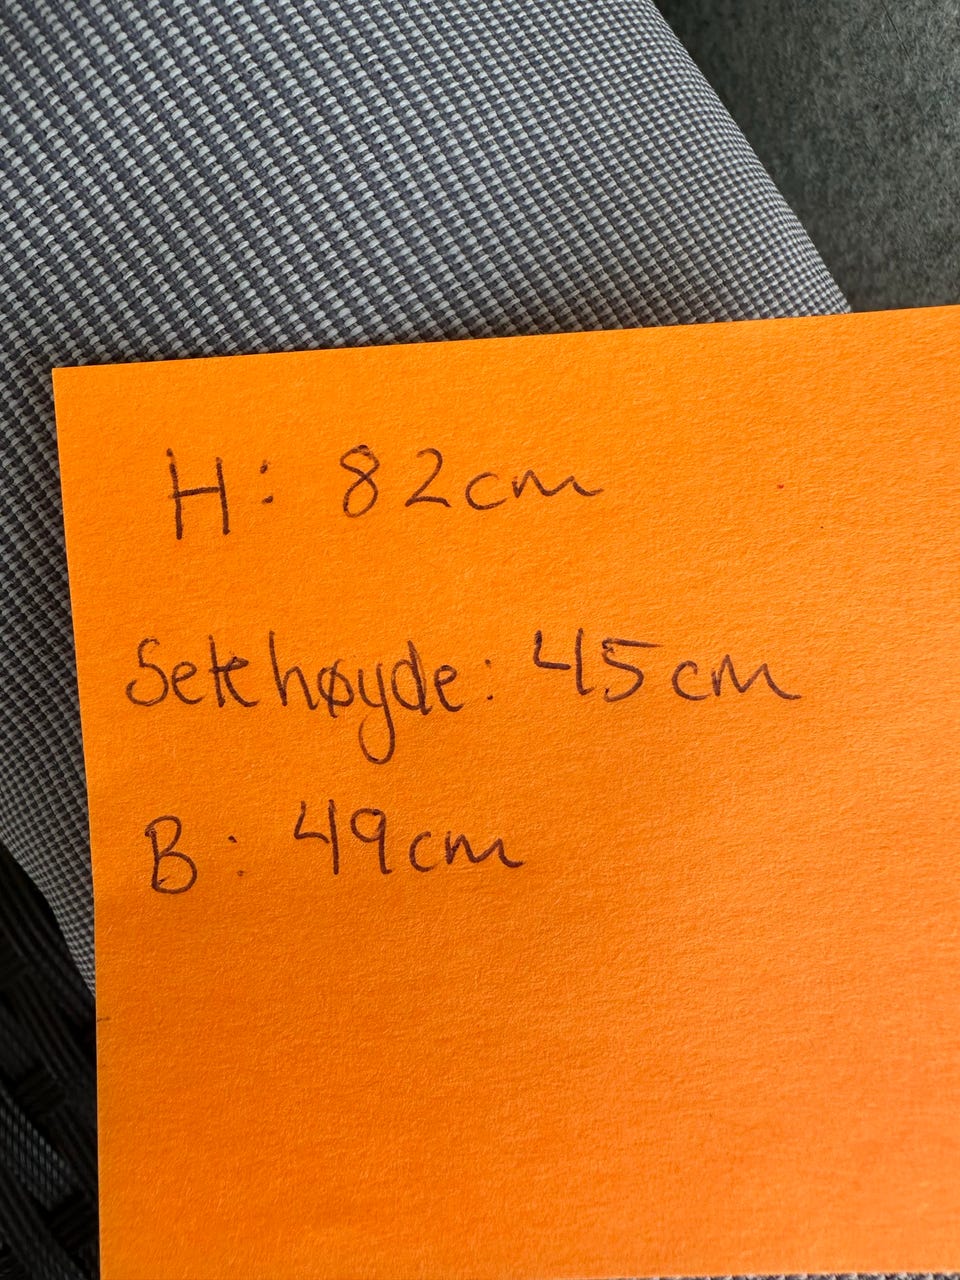 H: 82cm
Setehøyde: 45cm
B: 49cm